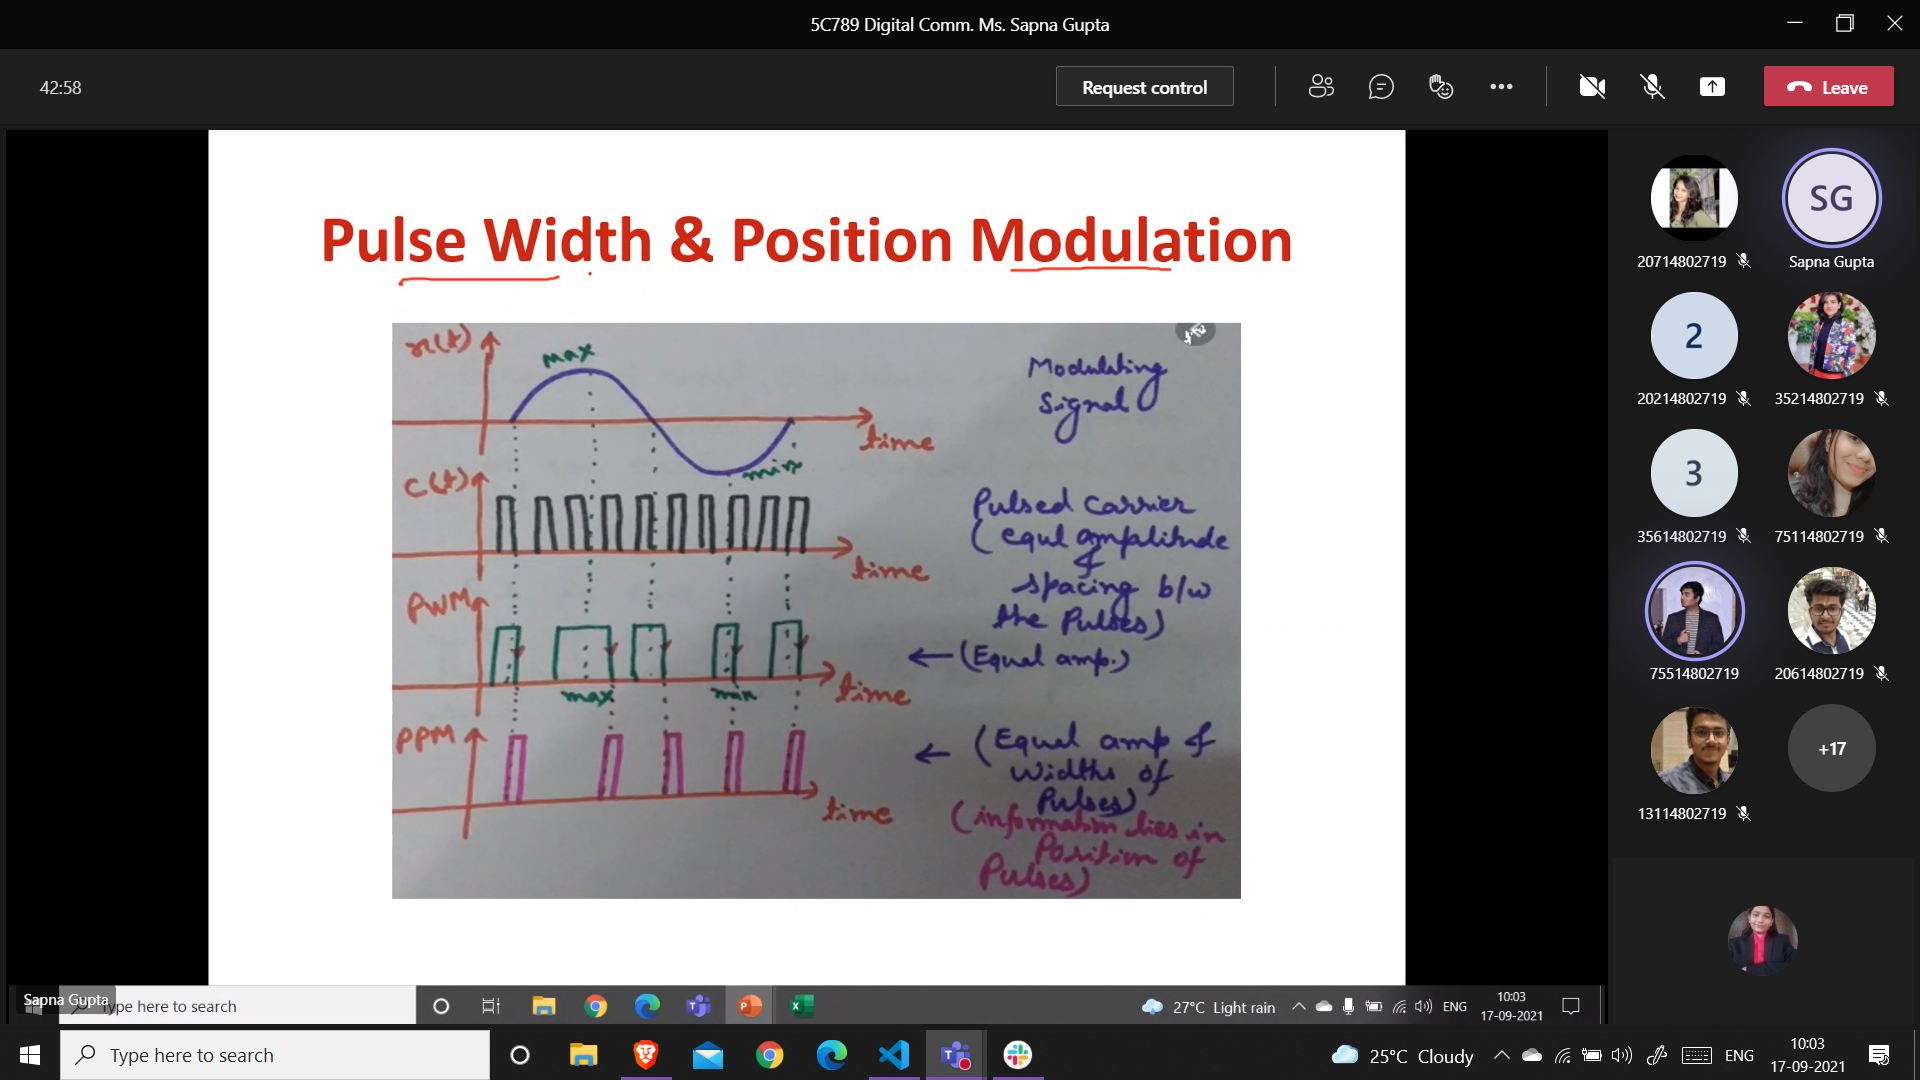 5C789 Digital Comm. Ms. Sapna Gupta
42:58
Request control
Leave
Pulse Width & Position Modulation
x(t)
max
Modulating
Signal
time
min
C(t)
Pulsed Carrier
(equl amplitude
&
spacing b/w
the Pulses)
time
PWM
(Equal amp.)
max
min
time
PPM
(Equal amp &
widths of
Pulses)
(information lies in
Position of
Pulses)
time
20714802719
SG
Sapna Gupta
2
20214802719
35214802719
3
35614802719
75114802719
75514802719
20614802719
13114802719
+17
Sapna Gupta
Type here to search
27°C Light rain
ENG
10:03
17-09-2021
Type here to search
25°C Cloudy
ENG
10:03
17-09-2021